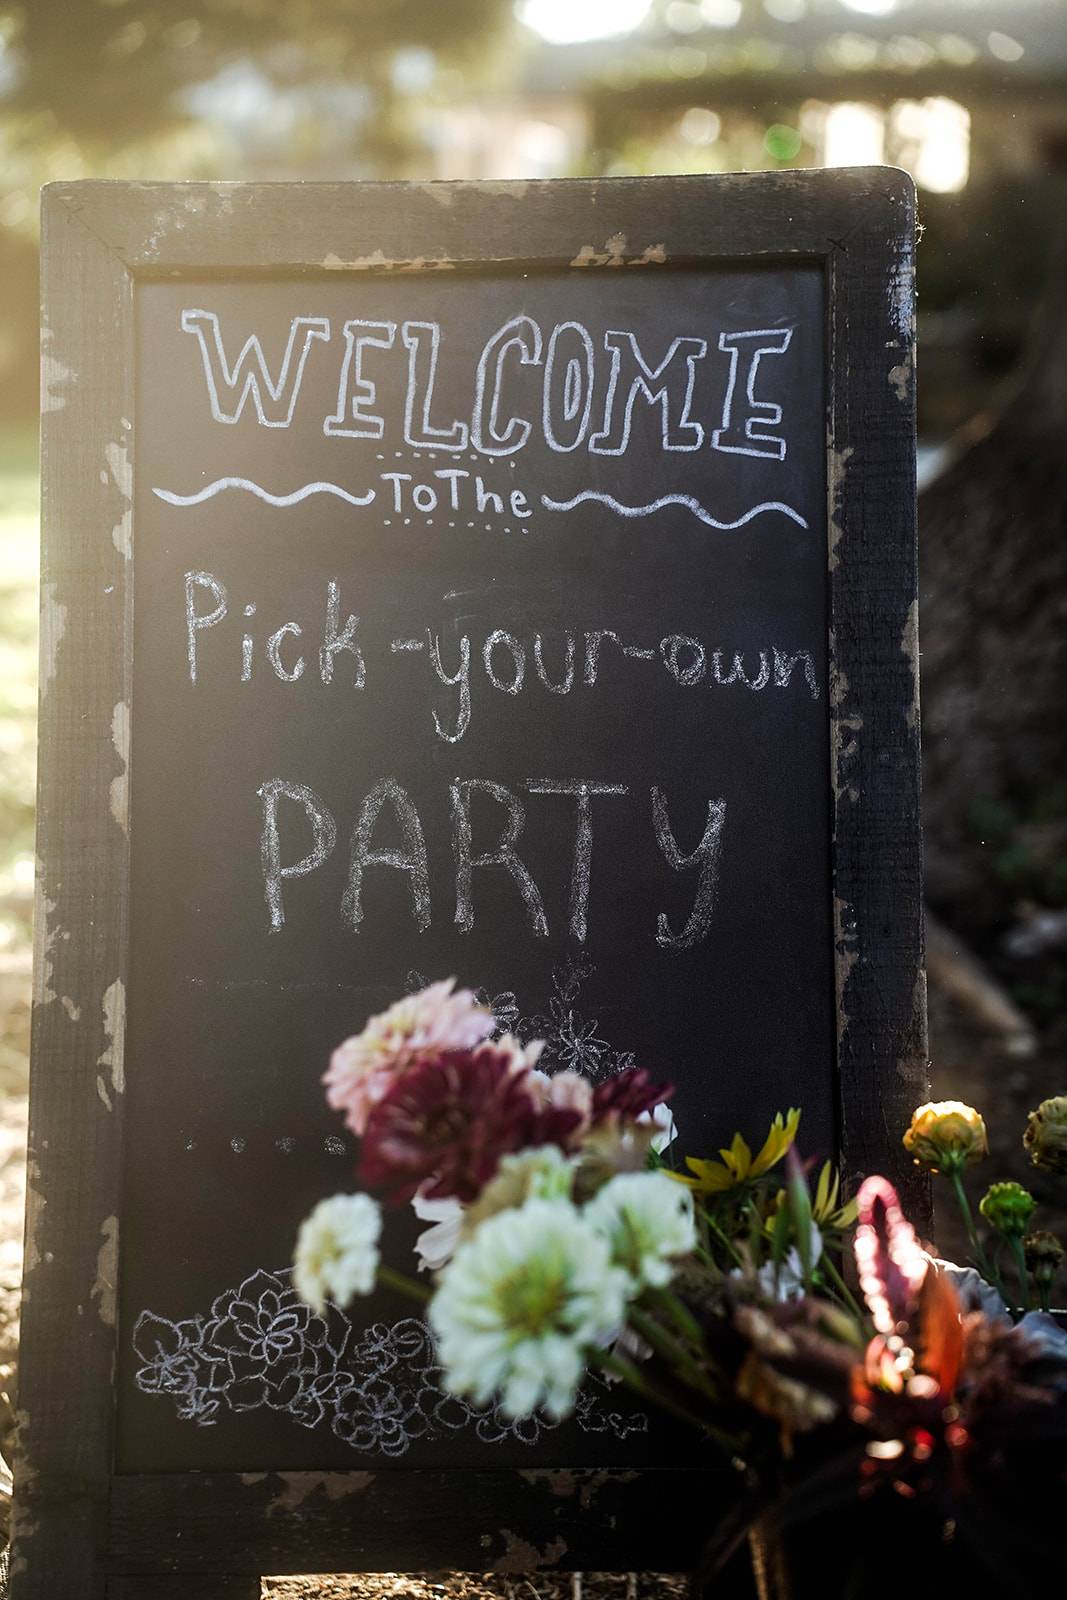 WELCOME
ToThe
Pick-your-own
PARTY